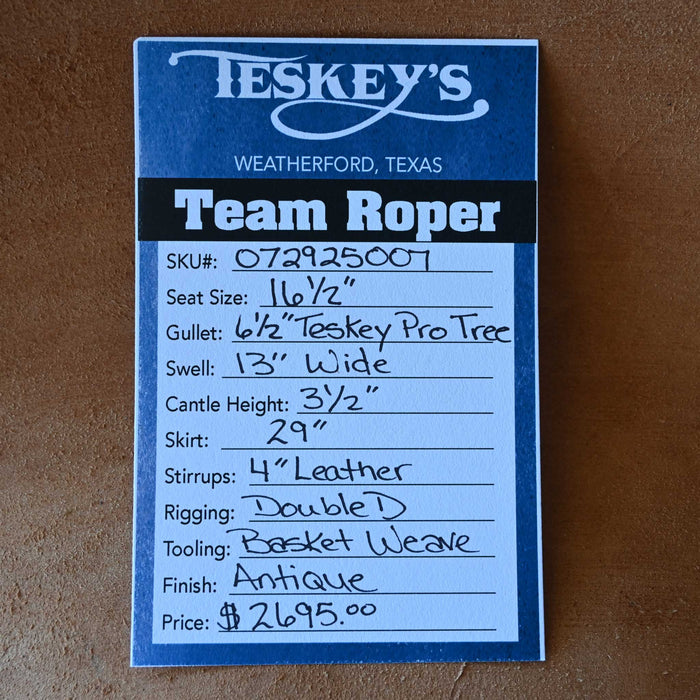 TESKEY'S
WEATHERFORD, TEXAS
Team Roper
SKU#: 072925007
Seat Size: 16 1/2"
Gullet: 6 1/2" Teskey Pro Tree
Swell: 13" Wide
Cantle Height: 3 1/2"
Skirt: 29"
Stirrups: 4" Leather
Rigging: Double D
Tooling: Basket Weave
Finish: Antique
Price: $2695.00